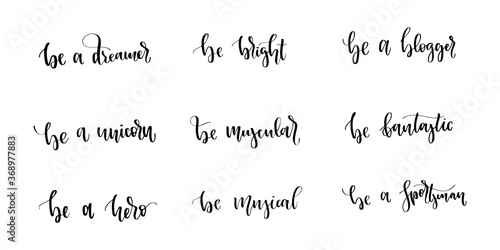 be a dreamer
be bright
be a blogger
be a unicorn
be muscular
be fantastic
be a hero
be musical
be a sportsman
Adobe Stock | #368977883